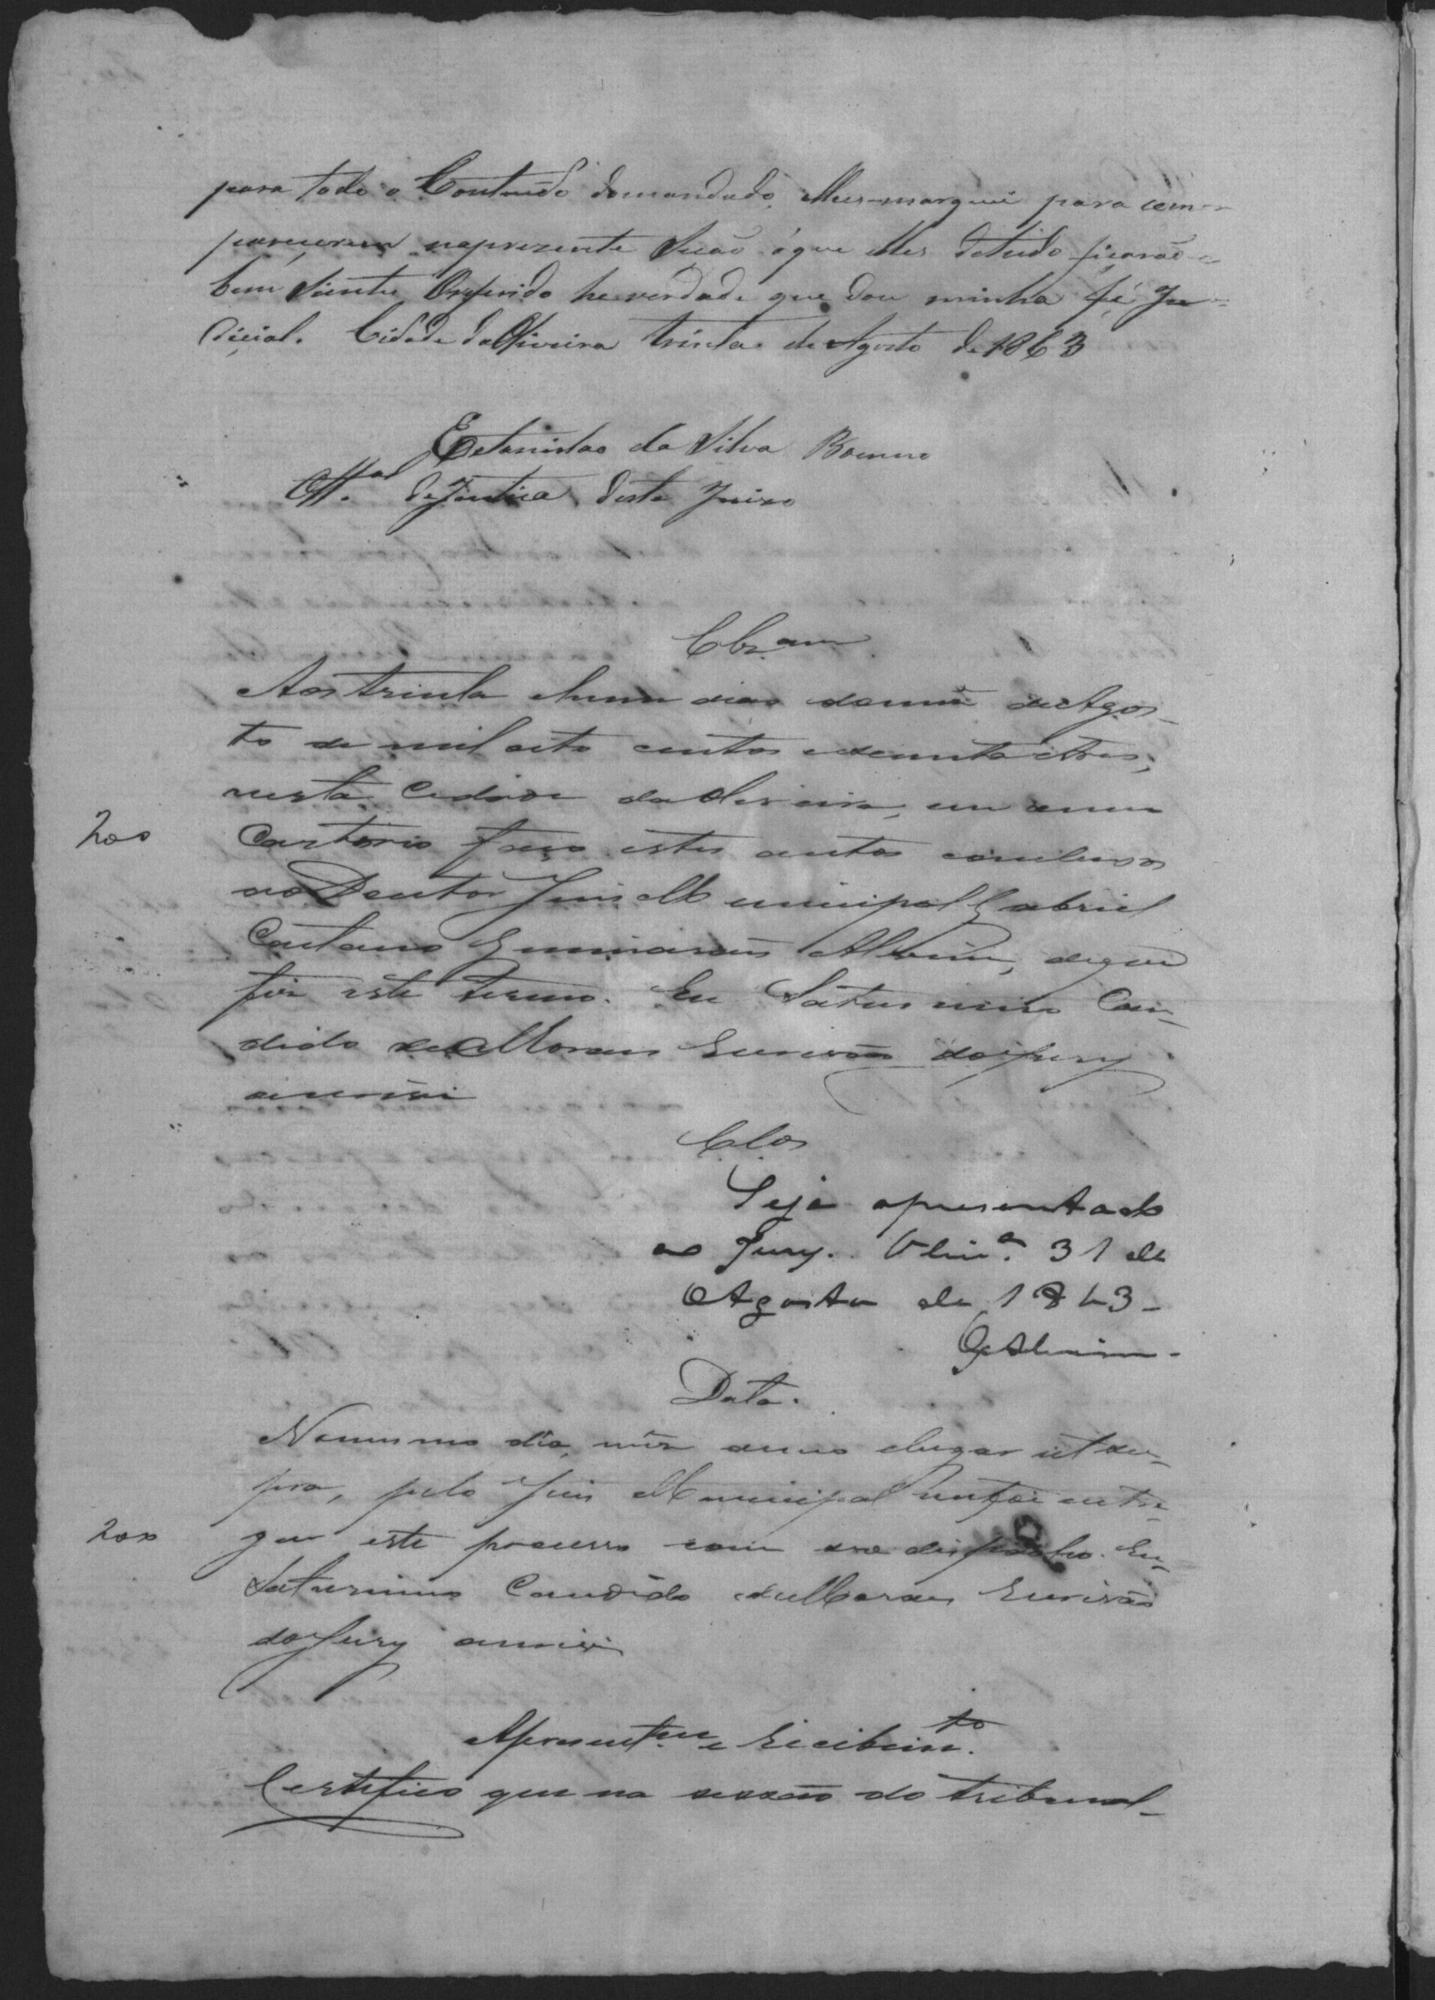 para todo o Conteudo domandado, elhes marquei para com=
parecerem naprezente Seção óque elles detudo ficarão
bem Siente Oreferido heverdade que dou minha fé Ju=
dicial. Cidade daOliveira trinta de Agosto de 1863
Estanislao da Silva
Off.al deJustica deste Juizo
Clz.am
Aos trinta ehum dias domez de Agos-
to de mil oito centos esecenta etres,
nesta Cidade daOliveira, em meu
200
Cartorio faço estes autos conclusos
ao Doutor Juis Municipal Gabriel
Caetano Guimaraes Alvim, deque
fis este termo. Eu Saturnino Can-
dido de Moraes Escrivão do Jury
escrevi
Clos
Seja apresentado
ao Jury. Oliv.a 31 de
Agosto de 1863 -
GAlvim.
Data.
Nomesmo dia, mez anno elugar ut su-
pra, pelo Juis Municipal mefoi entre-
200
gue este processo com seo despacho. Eu
Saturnino Candido de Moraes Escrivão
do Jury escrevi
Apresent.am e recebim.to
Certifico que na sessão do tribunal-